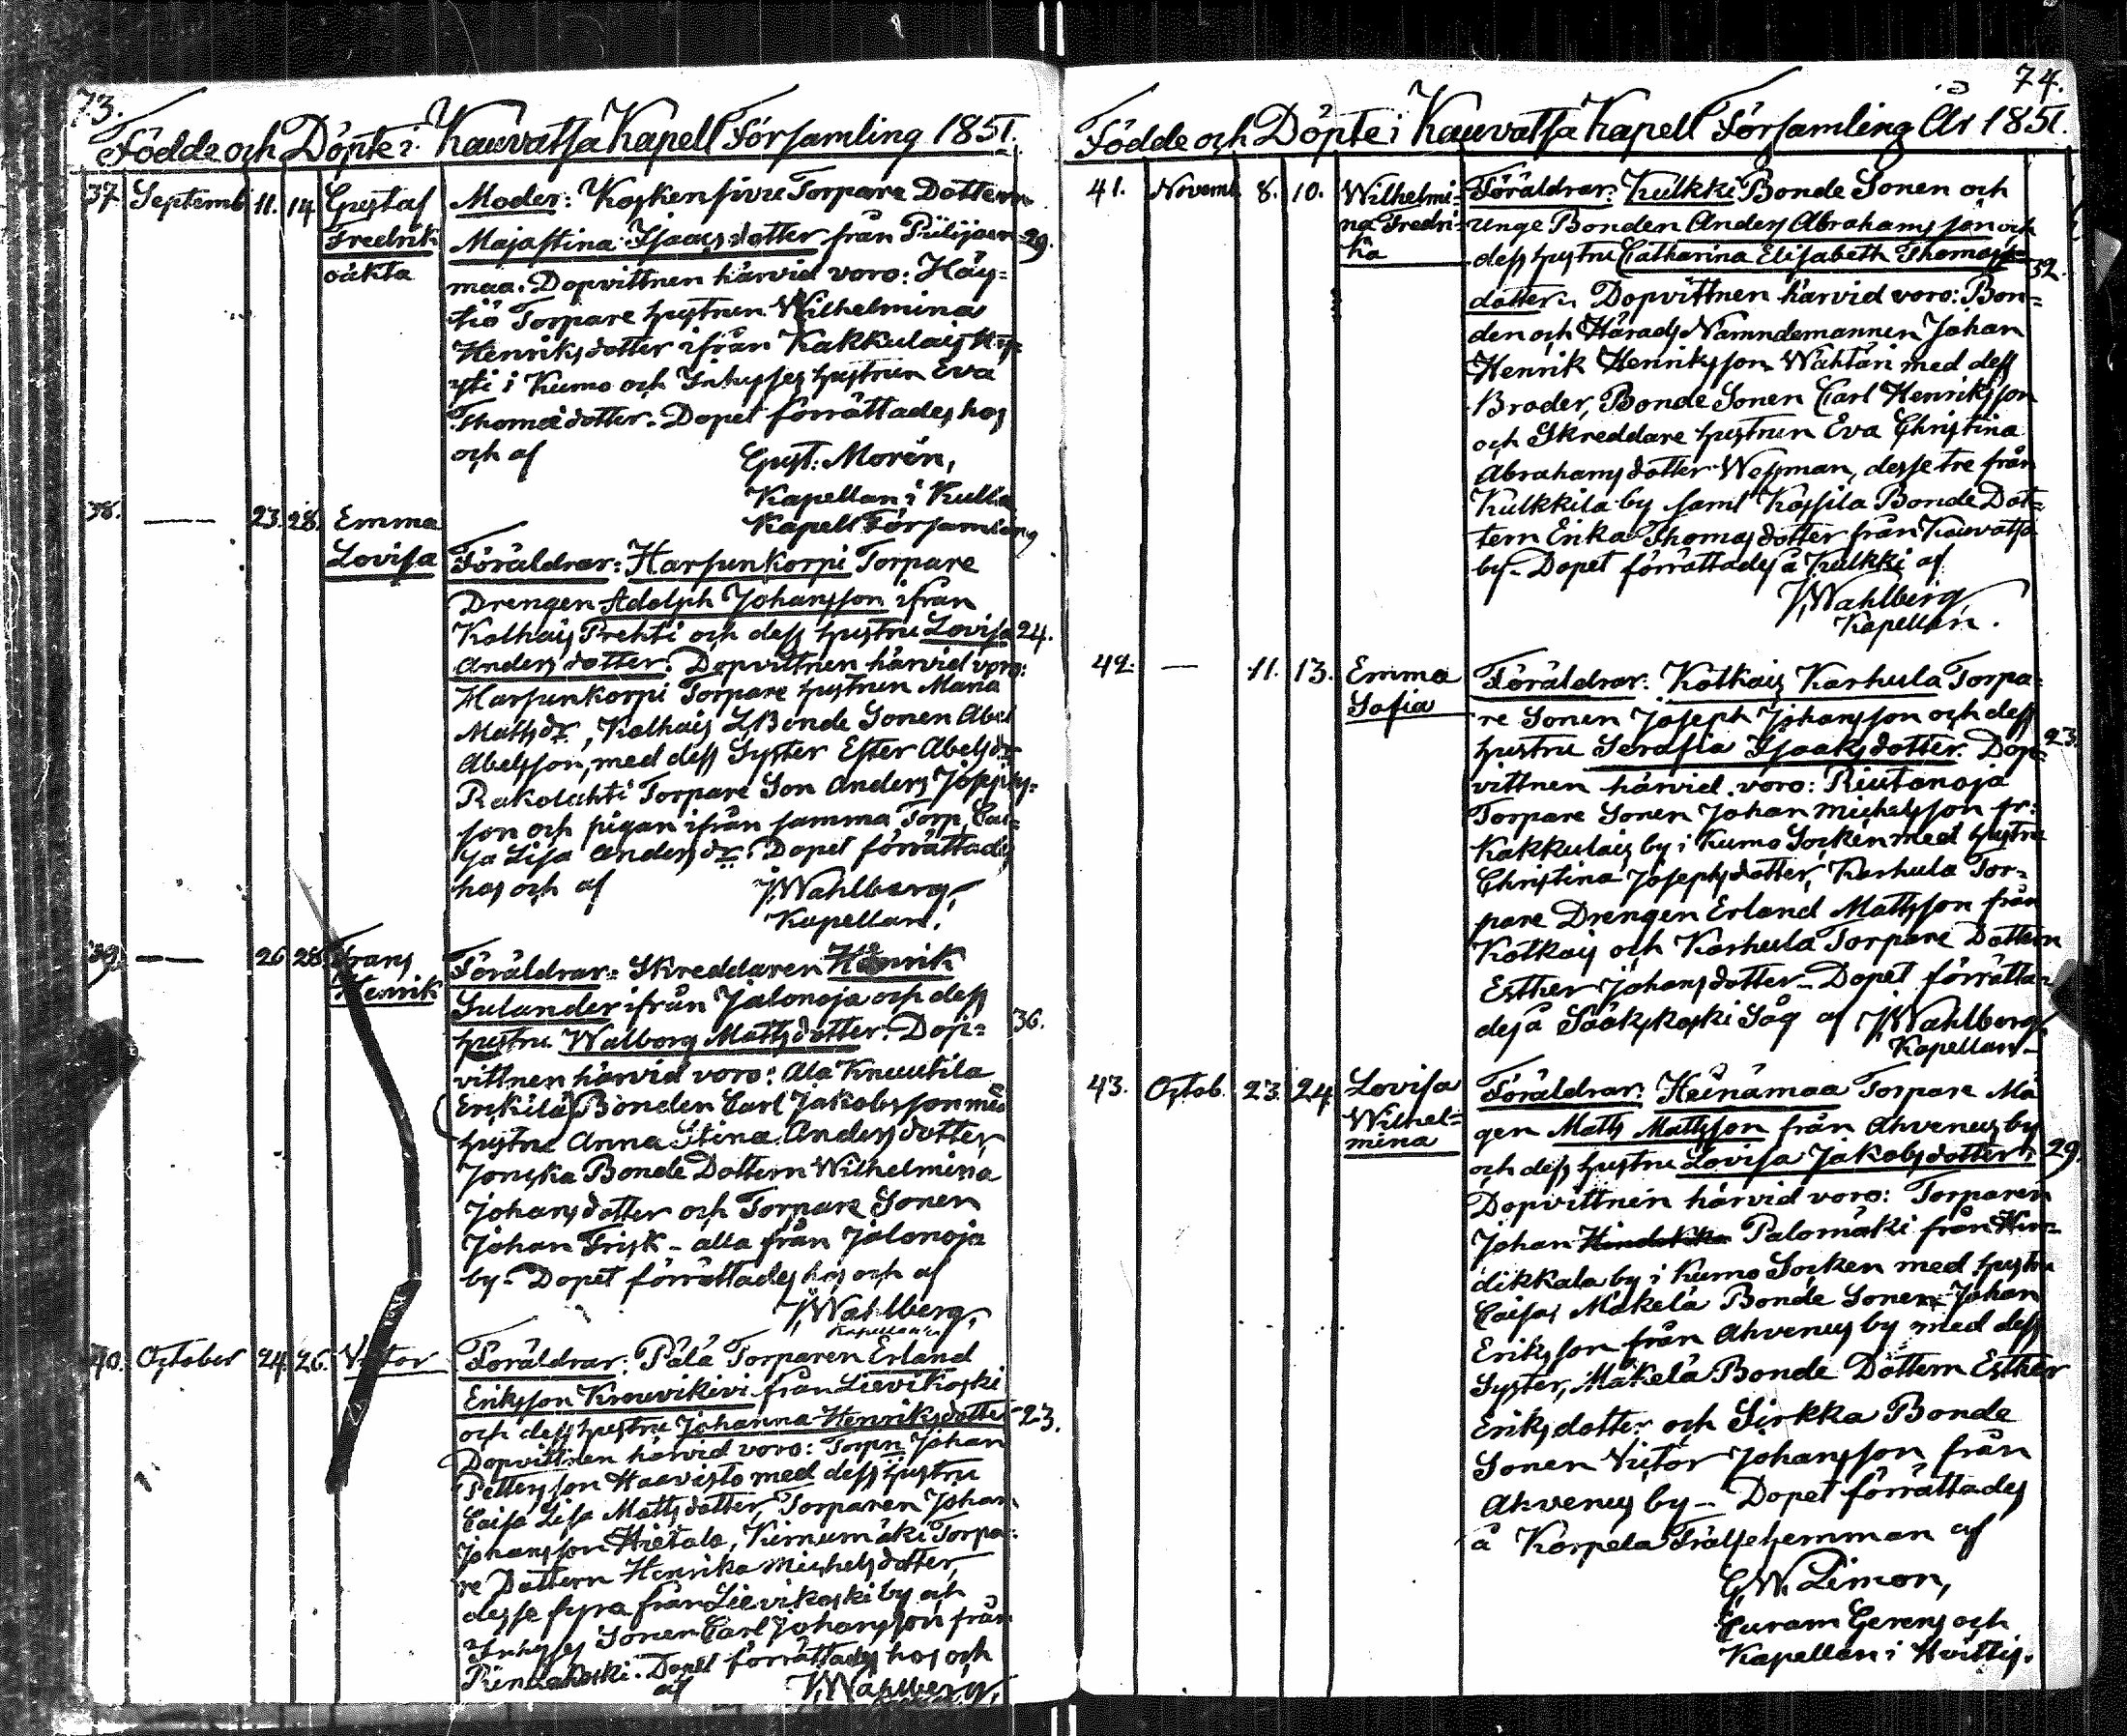 73.
Födde och Döpte i Kauvatsa Kapell Församling 1851.
37 Septemb 11. 14 Gustaf Fredrik oäkta
Moder: Koskensivu Torpare Dottern
Majastina Isaacsdotter från Piilijoen- 29.
maa. Dopvittnen härvid voro: Häy-
tiö Torpare hustrun Wilhelmina
Henriksdotter ifrån Kakkulais
i Kumo och Inhyses hustrun Eva
Thomædotter. Dopet förrättades hos
och af Gust: Morén,
Kapellan i Kulla
Kapell Församling
38. — 23. 28. Emma Lovisa
Föräldrar: Harsunkorpi Torpare
Drengen Adolph Johansson ifrån
Kolhais Prehti och dess hustru Lovisa 24.
Andersdotter. Dopvittnen härvid voro:
Harsunkorpi Torpare hustrun Maria
Mattsdr, Kolhais Bonde Sonen Abel
Abelsson, med dess Syster Ester Abelsdr
Rakolahti Torpare Son Anders Josephs-
son och pigan ifrån samma Torp, Cai-
sa Lisa Andersdr. Dopet förrättades
hos och af J. Wahlberg,
Kapellan.
39. — 26 28 Frans Henrik
Föräldrar: Skreddaren Henrik
Sulander ifrån Jalonoja och dess
hustru Walborg Mattsdotter. Dop- 36.
vittnen härvid voro: Ala Knuutila
(Erikilä) Bonden Carl Jakobsson med
hustru Anna Stina Andersdotter,
Jonska Bonde Dottern Wilhelmina
Johansdotter och Torpare Sonen
Johan Frisk - alla från Jalonoja
by - Dopet förrättades hos och af
J. Wahlberg,
Kapellan
40. October 24. 26. Victor
Föräldrar: Pälä Torparen Erland
Eriksson Krouvikivi från Lievikoski
och dess hustru Johanna Henriksdotter 23.
Dopvittnen härvid voro: Torpn Johan
Pettersson Haavisto med dess hustru
Caisa Lisa Mattsdotter, Torparen Johan
Johansson Hietala, Kirnumäki Torpa-
re Dottern Henrika Michelsdotter,
desse fyra från Lievikoski by och
Inhyses Sonen Carl Johansson från
Dopet förrättades hos och
af J. Wahlberg,
74.
Födde och Döpte i Kauvatsa Kapell Församling År 1851.
41. Novemb 8. 10. Wilhelmi-na Fredri-ka
Föräldrar: Kulkki Bonde Sonen och
unge Bonden Anders Abrahamsson och
dess hustru Catharina Elisabeth Thomas- 32.
dotter. Dopvittnen härvid voro: Bon-
den och Härads Nämndemannen Johan
Henrik Henriksson Wähtäri med dess
Broder, Bonde Sonen Carl Henriksson
och Skreddare hustrun Eva Christina
Abrahamsdotter Wessman, desse tre från
Kulkkila by samt Kossila Bonde Dot-
tern Erika Thomasdotter från Kauvatsa
by - Dopet förrättades å Kulkki af
J. Wahlberg,
Kapellan.
42. — 11. 13. Emma Sofia
Föräldrar: Kotkais Karhula Torpa-
re Sonen Joseph Johansson och dess
hustru Serafia Isaaksdotter. Dop- 23.
vittnen härvid voro: Riutanoja
Torpare Sonen Johan Michelsson fr:
Kakkulais by i Kumo Socken med hustru
Christina Josephsdotter, Karhula Tor-
pare Drengen Erland Mattsson från
Kotkais och Karhula Torpare Dottern
Esther Johansdotter - Dopet förrätta-
des å Sääkskoski Såg af J. Wahlberg
Kapellan -
43. Octob. 23. 24 Lovisa Wilhel-mina
Föräldrar: Heinämaa Torpare Må
gen Matts Mattsson från Ahvenus by
och dess hustru Lovisa Jakobsdotter. 29.
Dopvittnen härvid voro: Torparen
Johan Palomäki från Hin-
dikkala by i Kumo Socken med hustru
Caisa, Mäkelä Bonde Sonen Johan
Eriksson från Ahvenus by med dess
Syster, Mäkelä Bonde Dottern Esther
Eriksdotter och Sirkka Bonde
Sonen Victor Johansson från
Ahvenus by - Dopet förrättades
å Korpela Frälsehemman af
G.W. Limon,
Curam Gerens och
Kapellan i Hvittis.